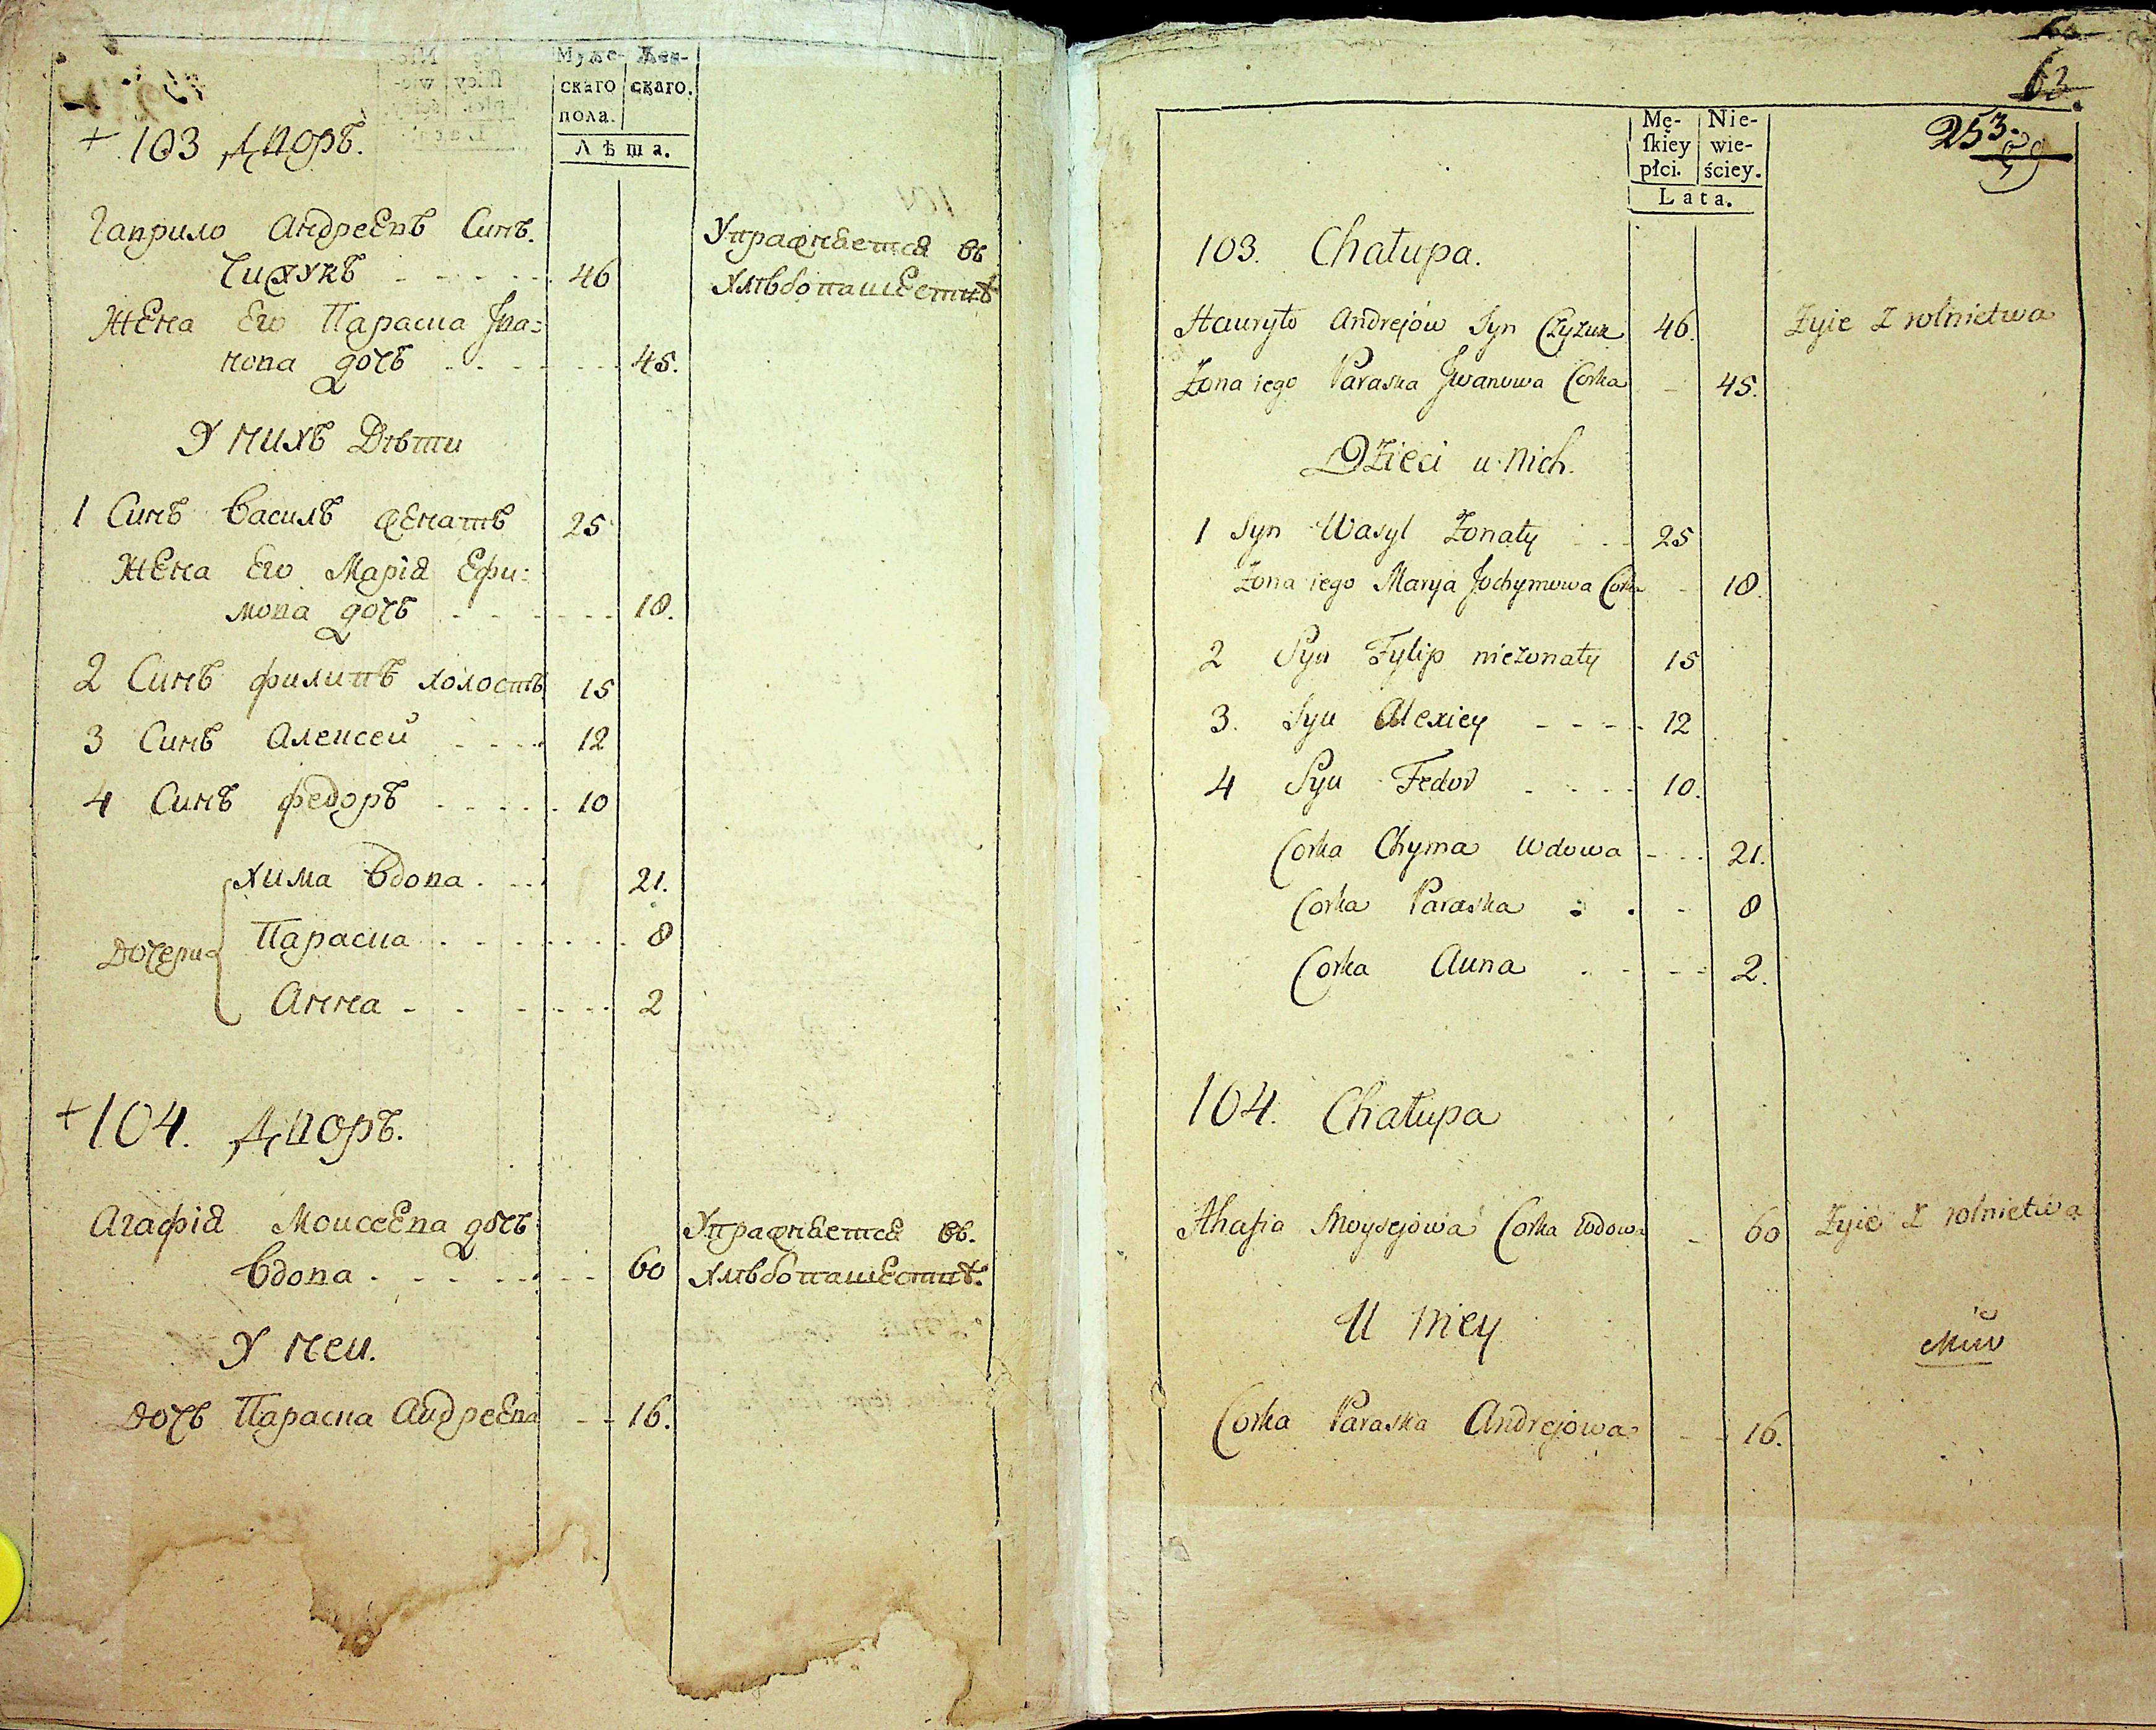 Муже-
скаго
пола.
Жен-
скаго.
Лѣта.
+ 103 Дворъ.
Гаврило Андреевъ Синъ.
Чижукъ - - - - - 46
Управняется въ
Хлѣбопашествѣ
Жена Его Параска Iва=
нова дочъ - - - - - - 45.
У нихъ Дѣти
1 Синъ Василъ женатъ 25
Жена Его Марія Ефи:
мова дочъ - - - - - - 18.
2 Синъ филипъ холостъ 15
3 Синъ Алексей - - - - 12
4 Синъ федоръ - - - - - 10
Дочери
Хима Вдова - - - 21.
Параска - - - - - - - 8
Анна - - - - - - 2
+ 104. Дворъ.
Агафія Моисеева дочъ
Вдова - - - - - - - 60
Управняется въ.
Хлѣбопашествѣ.
У неи.
Дочъ Параска Андреева - - 16.
63.
253.
Mę-
ſkiey
płci.
Nie-
wie-
ściey.
Lata.
103. Chałupa.
Hauryło Andrejów Syn Czyżuk 46. Żyie z rolnictwa
Żona iego Paraska Jwanowa Corka - 45.
Dzieci u Nich.
1 Syn Wasyl Żonaty - - - 25
Żona iego Marya Jochymowa Corka - 18.
2 Syn Fylip nieżonaty 15
3. Syn Alexiey - - - - 12
4 Syn Fedor - - - - 10.
Corka Chyma Wdowa - - - 21.
Corka Paraska - - - 8
Corka Anna - - - - 2.
104. Chałupa
Ahafia Moysejowa Corka wdowa - 60 Żyie z rolnictwa
U Niey
Corka Paraska Andrejowa - - 16.